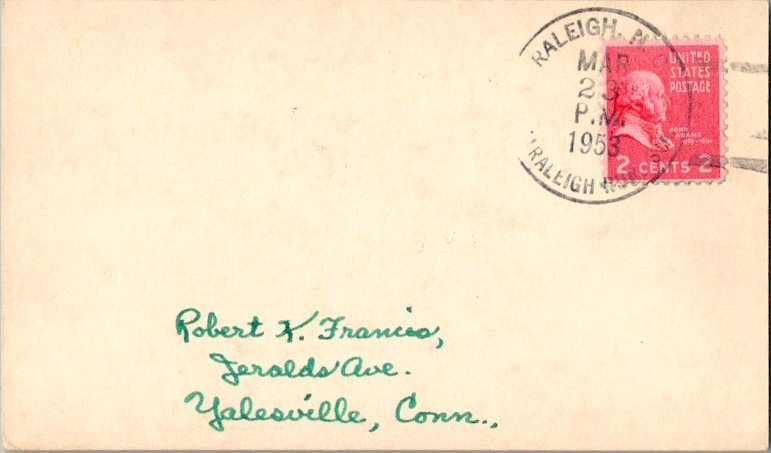 RALEIGH, N.
MAR
23
P.M.
1953
RALEIGH
UNITED
STATES
POSTAGE
JOHN
ADAMS
1797-1801
2 CENTS 2
Robert K. Francis,
Jeralds Ave.
Yalesville, Conn.,